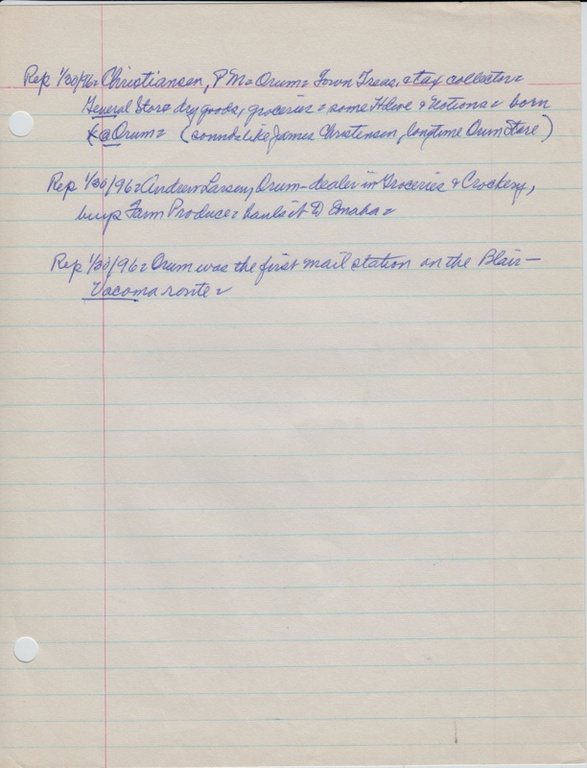 Rep 1/30/96 = Christiansen, P M = Orum = Town Treas. & tax collector =
General Store = dry goods, groceries = some Hdwe & Notions = born
@ Orum = (sounds like James Christensen, longtime Orum Store)
Rep 1/30/96 = Andrew Larsen, Orum - dealer in Groceries & Crockery,
buys Farm Produce = hauls it to Omaha =
Rep 1/30/96 = Orum was the first mail station on the Blair -
Vacoma route =